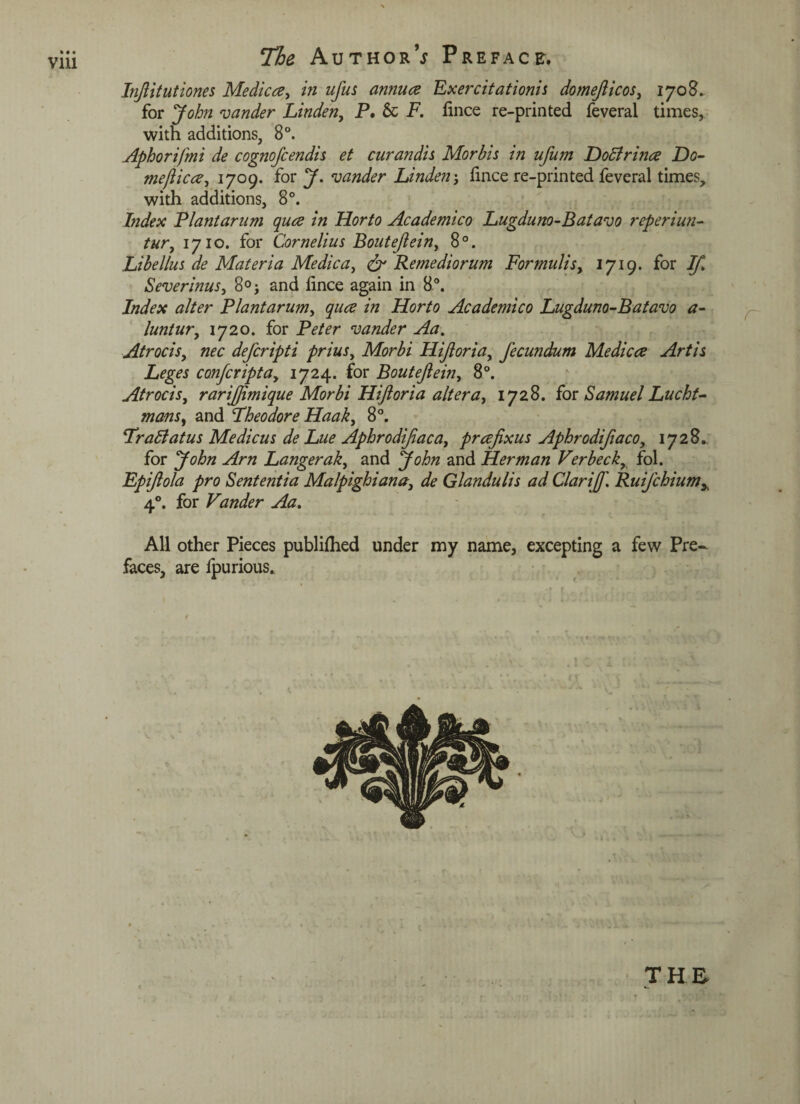 viii The Author's Preface.
Inſtitutiones Medicæ, in uſus annuæ Exercitationis domeſticos, 1708.
for John vander Linden, P. & F. ſince re-printed ſeveral times,
with additions, 8°.
Aphoriſmi de cognoſcendis et curandis Morbis in uſum Doctrinæ Do-
meſticæ, 1709. for J. vander Linden; ſince re-printed ſeveral times,
with additions, 8°.
Index Plantarum quæ in Horto Academico Lugduno-Batavo reperiun-
tur, 1710. for Cornelius Bouteſtein, 8°.
Libellus de Materia Medica, & Remediorum Formulis, 1719. for Iſ.
Severinus, 8°; and ſince again in 8°.
Index alter Plantarum, quæ in Horto Academico Lugduno-Batavo a-
luntur, 1720. for Peter vander Aa.
Atrocis, nec deſcripti prius, Morbi Hiſtoria, ſecundum Medicæ Artis
Leges conſcripta, 1724. for Bouteſtein, 8°.
Atrocis, rariſſimique Morbi Hiſtoria altera, 1728. for Samuel Lucht-
mans, and Theodore Haak, 8°.
Tractatus Medicus de Lue Aphrodiſiaca, præfixus Aphrodiſiaco, 1728.
for John Arn Langerak, and John and Herman Verbeck, fol.
Epiſtola pro Sententia Malpighiana, de Glandulis ad Clariſſ. Ruiſchium,
4°. for Vander Aa.
All other Pieces publiſhed under my name, excepting a few Pre-
faces, are ſpurious.
THE